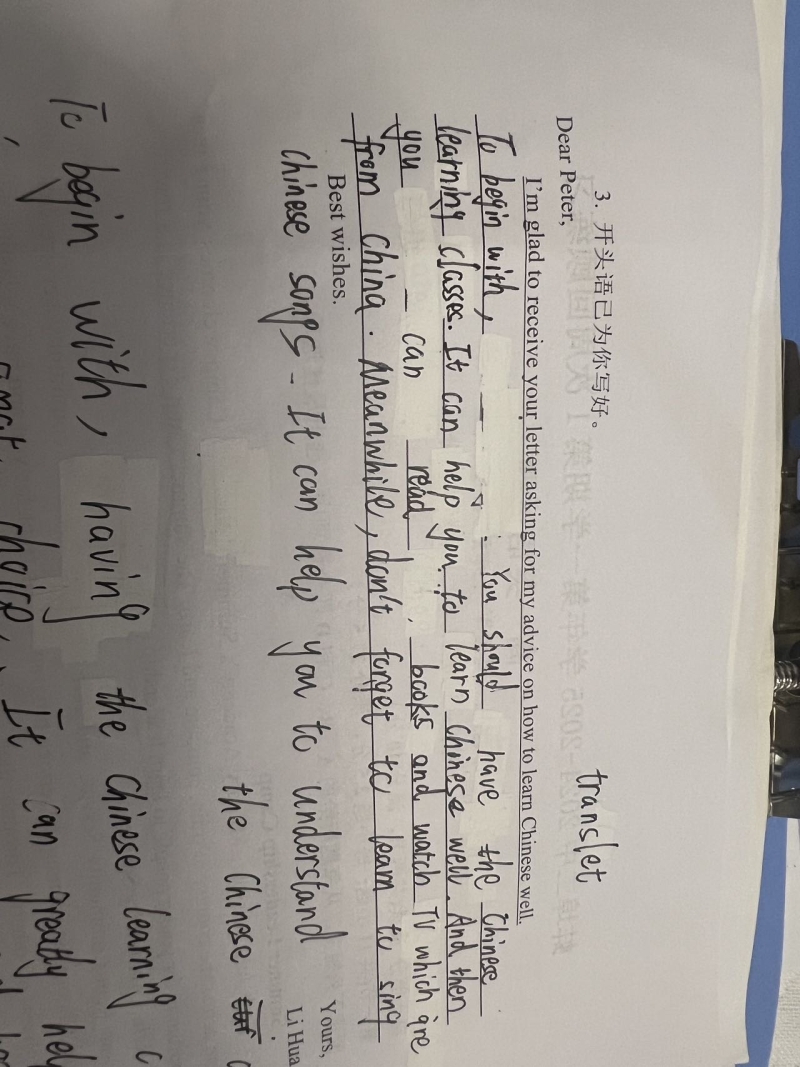 translet
3. 开头语已为你写好。
Dear Peter,
I'm glad to receive your letter asking for my advice on how to learn Chinese well.
To begin with, . You should have the Chinese
learning classes. It can help you to learn Chinese well. And then
you can read books and watch TV which are
from China. Meanwhile, don't forget to learn to sing
Best wishes.
Chinese songs. It can help you to understand
Yours,
Li Hua
the Chinese
To begin with, having the Chinese learning c
choice, It can greatly hel